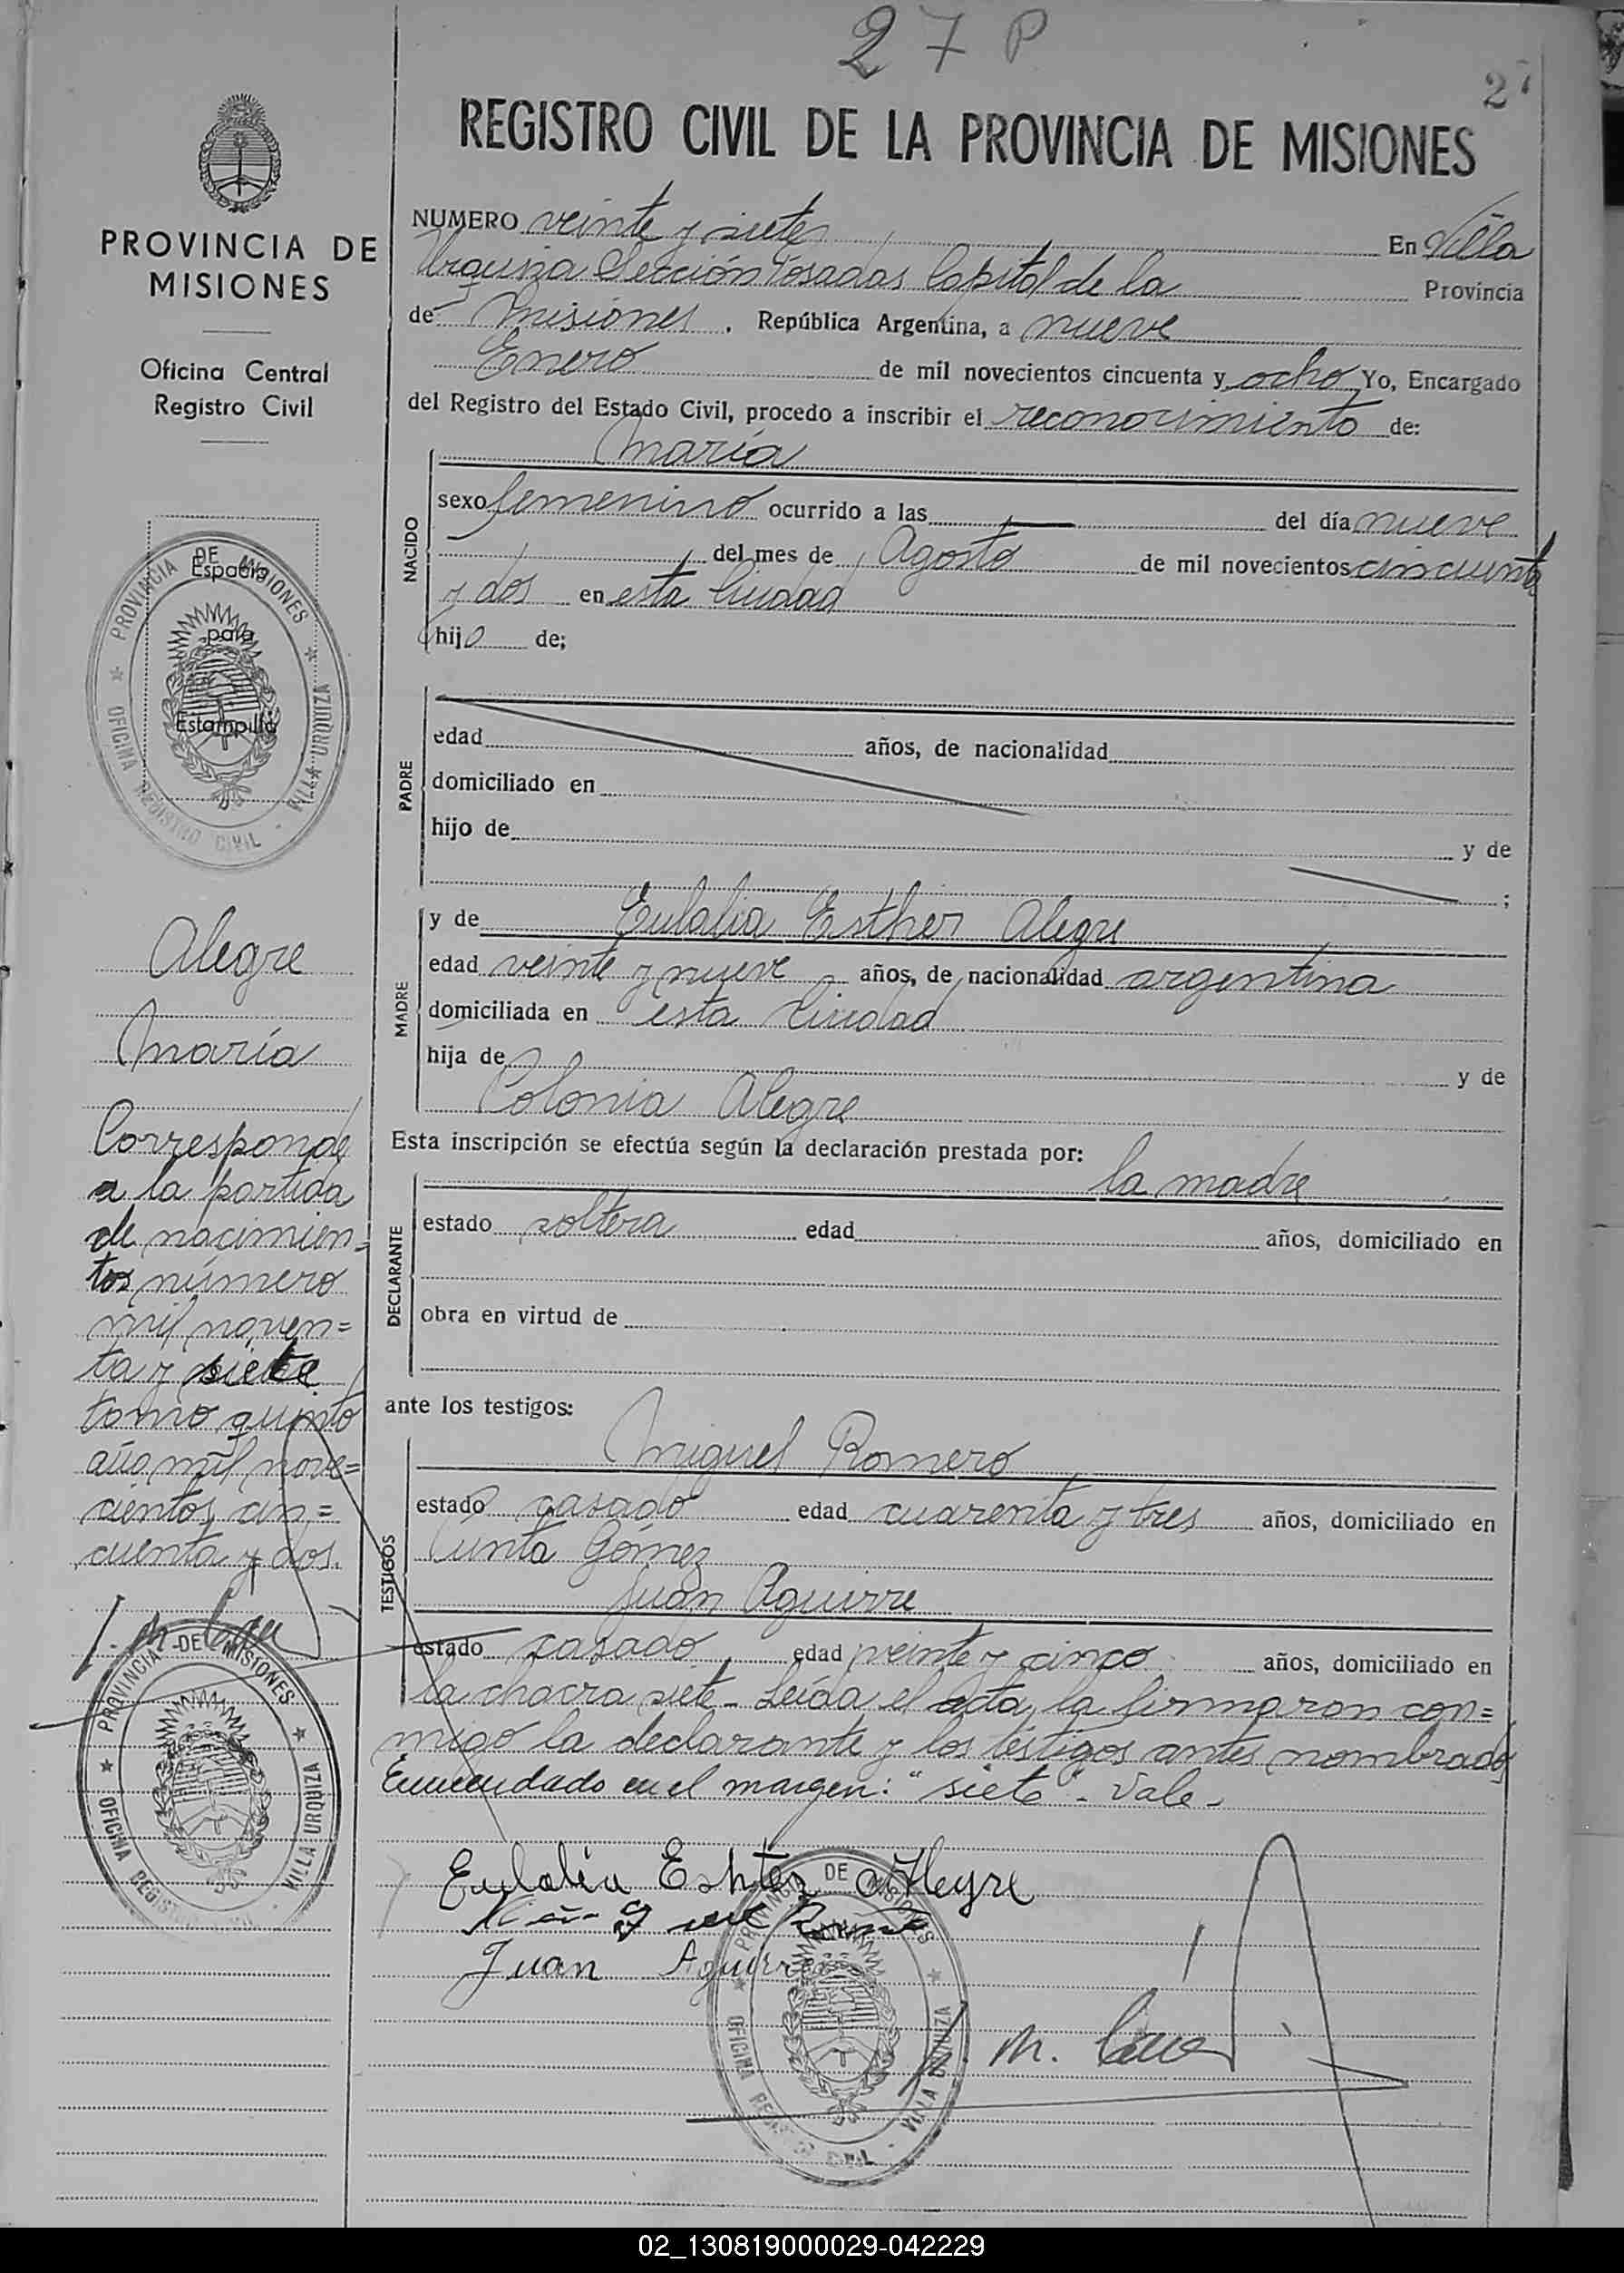 27 P
27
REGISTRO CIVIL DE LA PROVINCIA DE MISIONES
PROVINCIA DE
MISIONES
Oficina Central
Registro Civil
PROVINCIA DE MISIONES
Espacio
para
Estampilla
OFICINA REGISTRO CIVIL - VILLA URQUIZA
Alegre
María
Corresponde
a la partida
de nacimien=
tos número
mil noven=
ta y siete
tomo quinto
año mil nove=
cientos cin=
cuenta y dos.
PROVINCIA DE MISIONES
OFICINA REGISTRO CIVIL - VILLA URQUIZA
NUMERO veinte y siete En Villa
Urquiza Sección Posadas Capital de la Provincia
de Misiones . República Argentina, a nueve
Enero de mil novecientos cincuenta y ocho Yo, Encargado
del Registro del Estado Civil, procedo a inscribir el reconocimiento de:
NACIDO
María
sexo femenino ocurrido a las — del día nueve
del mes de Agosto de mil novecientos cincuenta
y dos en esta Ciudad
hijo de;
PADRE
edad años, de nacionalidad
domiciliado en
hijo de y de
;
MADRE
y de Eulalia Esther Alegre
edad veinte y nueve años, de nacionalidad argentina
domiciliada en esta Ciudad
hija de y de
Colonia Alegre
Esta inscripción se efectúa según la declaración prestada por:
DECLARANTE
la madre
estado soltera edad años, domiciliado en
obra en virtud de
ante los testigos:
TESTIGOS
Miguel Romero
estado casado edad cuarenta y tres años, domiciliado en
Cunta Gómez
Juan Aguirre
estado casado edad veinte y cinco años, domiciliado en
la chacra siete - Leida el acta, la firmaron con=
migo la declarante y los testigos antes nombrados
Enmendado en el margen: "siete" - Vale -
Eulalia Eshter Alegre
Juan Aguirre
PROVINCIA DE MISIONES
OFICINA REGISTRO CIVIL - VILLA URQUIZA
02_130819000029-042229